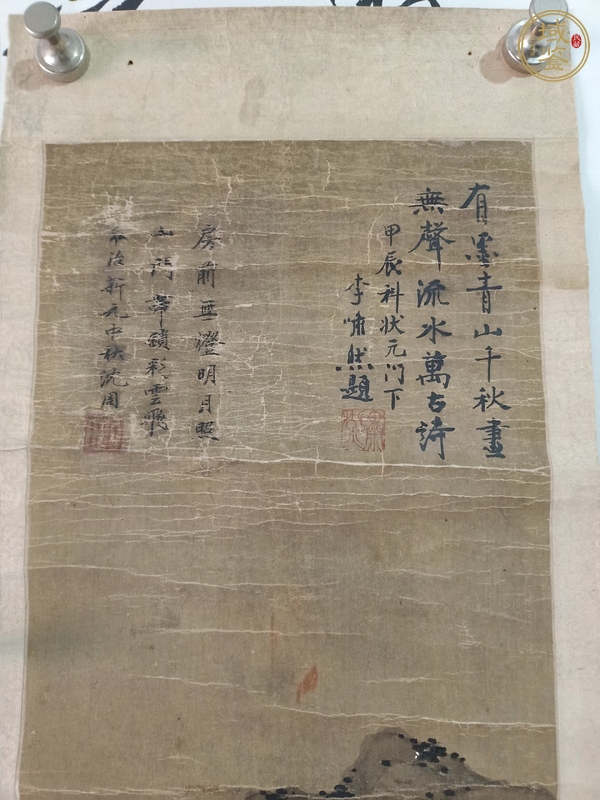 有墨青山千秋畫
無聲流水萬古詩
甲辰科狀元門下
李嘯然題
房前 澄明月照
門 鎖彩雲飛
治新元中秋沈周